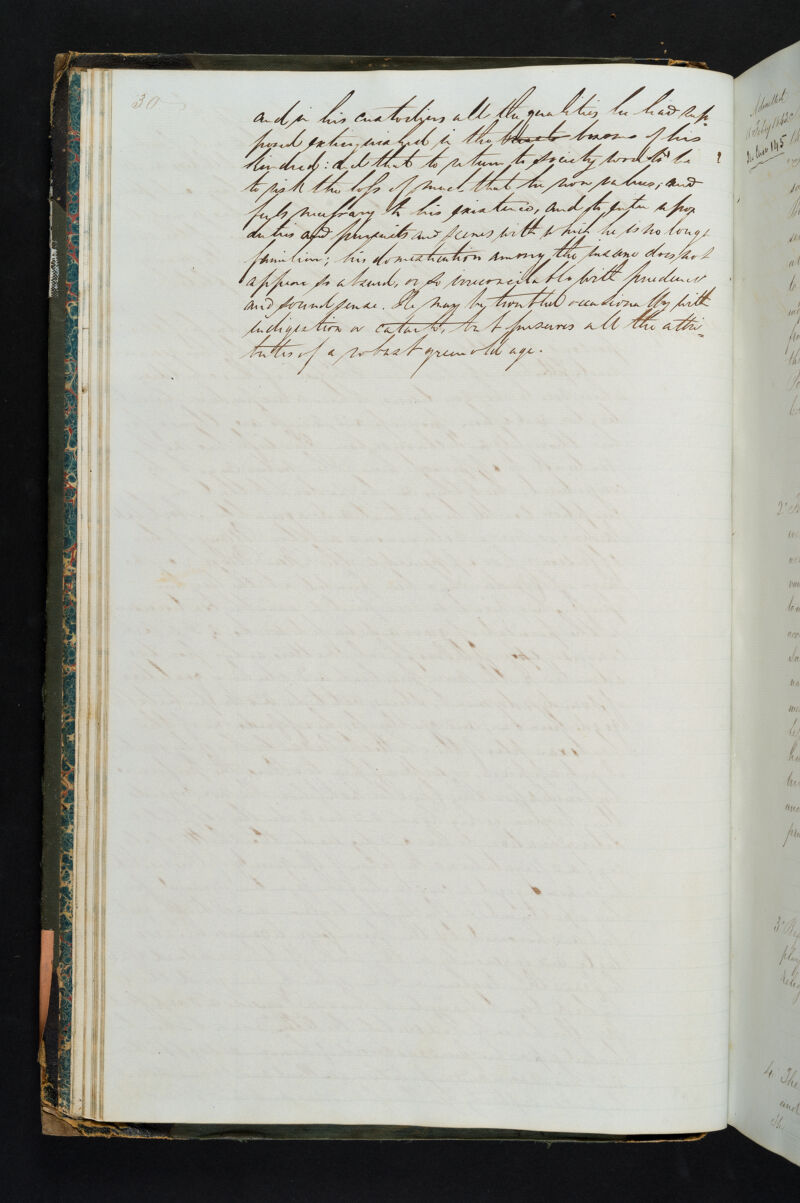 30
and in his custodiers all the qualities he had sup-
posed extinguished in the hearts bosoms of his
kindred: and that to return to society would be
to risk the loss of much that he now values, and
feels necessary to his existence, and to enter upon
duties and pursuits and scenes with which he is no longer
familiar; his domestication among the insane does not
appear so absurd, or so irreconcilable with prudence
and sound sense. He may be troubled occasionally with
indigestion or catarrh, but preserves all the attri-
butes of a robust green old age.
Admitted
2°
3°
4° The
and